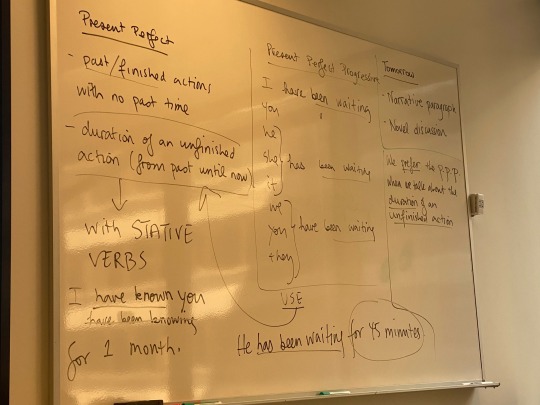 Present Perfect
- past/finished actions
with no past time
- duration of an unfinished
action (from past until now)
with STATIVE
VERBS
I have known you
have been knowing
for 1 month.
Present Perfect Progressive
I have been waiting
you
he
she has been waiting
it
we
you have been waiting
they
USE
He has been waiting for 45 minutes
Tomorrow
- Narrative paragraph
- Novel discussion
We prefer the p.p.p
when we talk about the
duration of an
unfinished action